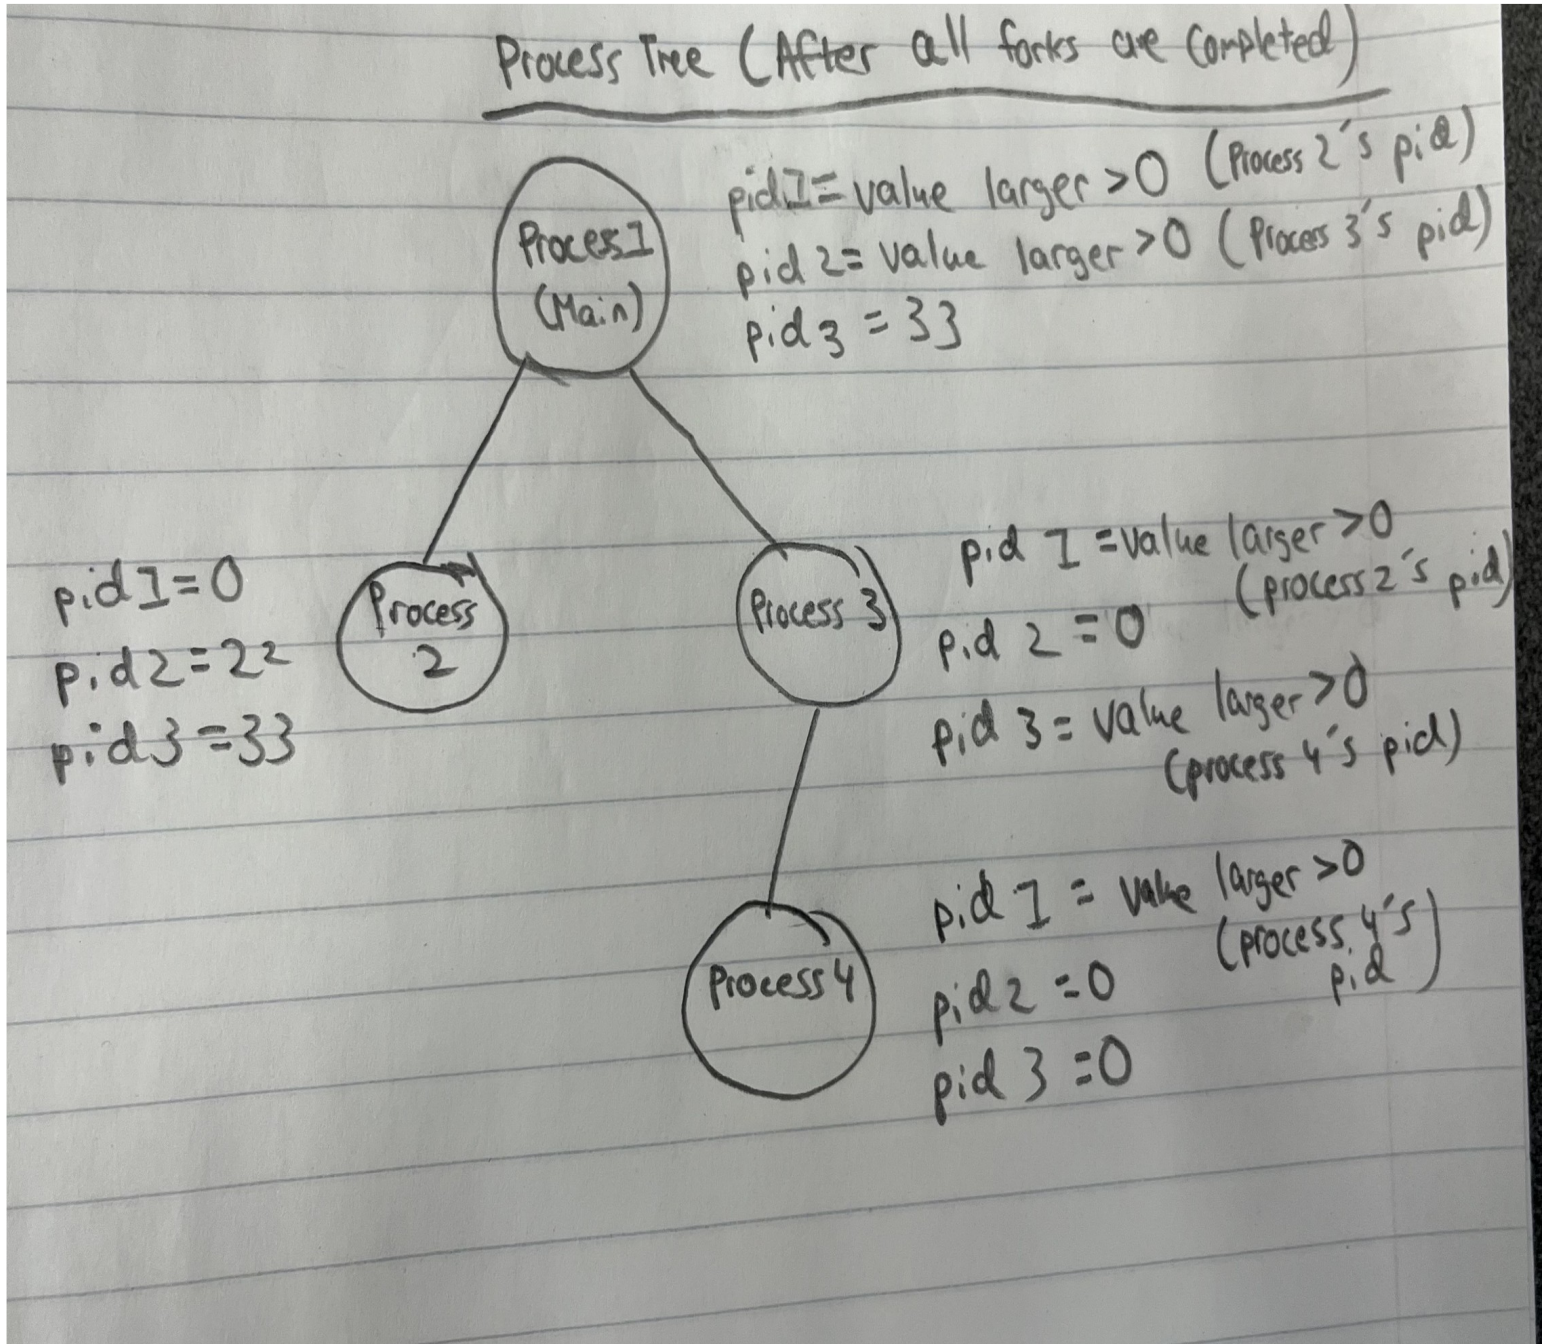 Process Tree (After all forks are completed)
Process1
(Main)
pid1= value larger >0 (Process 2's pid)
pid 2= value larger >0 (Process 3's pid)
pid 3 = 33
pid1=0
pid2=22
pid3=33
Process
2
Process 3
pid 1 =value larger >0
(process 2's pid)
pid 2 =0
pid 3 = value larger >0
(process 4's pid)
Process 4
pid 1 = value larger >0
(process 4's
pid)
pid2 =0
pid 3 =0